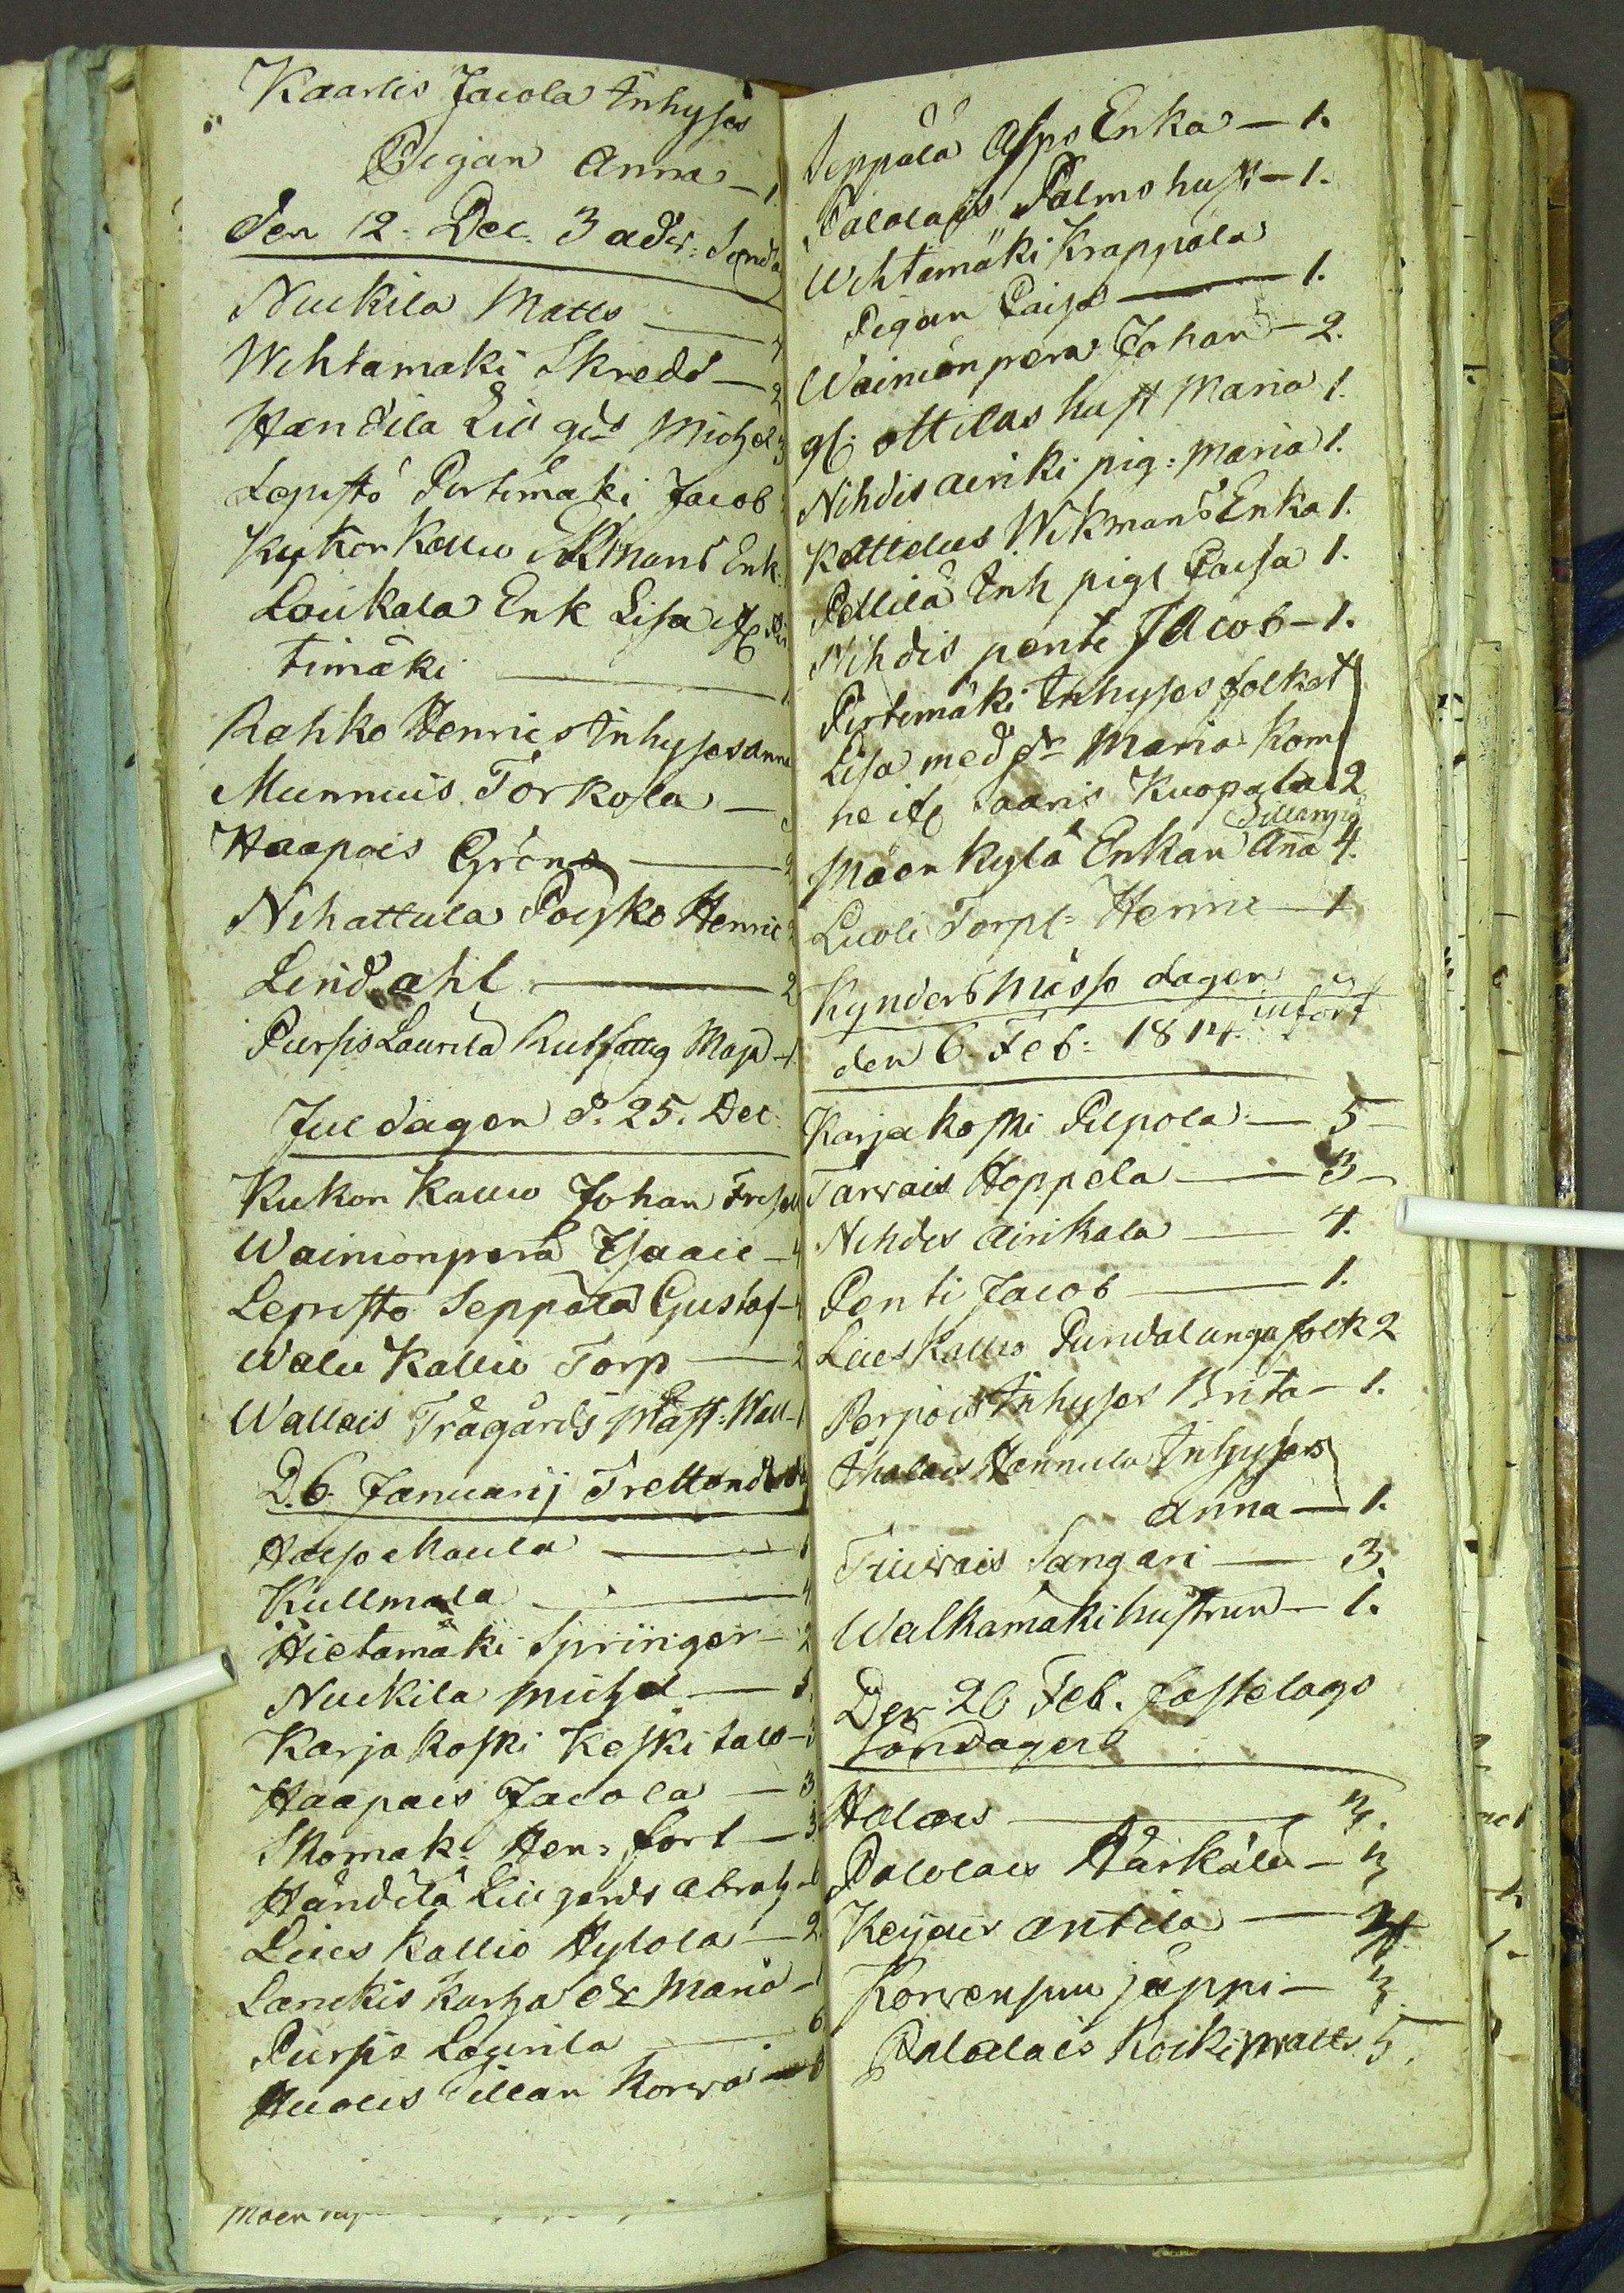 Kaarlis Jacola Inhyses
Pigan Anna — 1
Den 12. Dec. 3 adv: Sönda
Nuckila Matts —
Wihtamäki Skredd — 2
Händilä Lill gds Michel 3
Lepistö Pertimäki Jacob
Kyken Kallio Enk:
Laukala Enk Lisa
timäki — 1
Rahko Henrics Inhyses Anna
Munnuis Törkola —
Haapois Gröns — 2
Nihattula Poyko Henric 2
Lindahl — 2
Pursis Laurila Rutfattig Maja — 1
Juldagen d. 25. Dec.
Kukon Kallio Johan
Wainionperä Isaac — 4
Lepistö Seppälä Gustaf — 4
Walu Kallio Torp — 2
Wallais Trägårds Mast: Wall — 1
D. 6 Januarij Trettond
Kullmala — 4
Hietamäki Springer — 2
Nuckila Michel —
Karjakoski Keskitalo — 3
Haapais Jacola — 3
Skomak: Hen: fört — 3
Händilä Lill gards Abrah
Lieis Kallio Hylola — 2
Lanckis Karha Maria — 1
Pursis Laurila — 6
Huolis Tillan Korwa
Mäen
Seppälä Asps Enka — 1.
Palolais Palms hust — 1.
Wihtamäki Krappala
Pigan Caisa — 1.
Wainionpera Johan — 2.
gl: Ottilas hust Maria 1.
Nihdis Airiki pig: Maria 1.
Kattelus Wikmans Enka 1.
Pellilä Inh pigl Caisa 1.
Nihdis penti Jacob — 1.
Pertimäki Inhyses folket
Lisa med dr Maria kom
ne ifr Saaris Kuopala 2
Mäenkylä Enkan Anna 4.
Luoli Torpl: Henric — 1
Kynders mässo dagen
den 6. Feb: 1814. infört
Karjakoski Pilpola — 5 —
Tarvais Hoppela — 3 —
Nihdis Airikala — 4.
Penti Jacob — 1.
Lieis Kallio Pundalunga folk 2
Perpois Inhyses Brita — 1.
Thalais Hannula Inhyses
Anna — 1.
Tiuvais Sangari — 3.
Walkamäki hustrun — 1.
Den 20 Feb. fastelags
söndagen
Halois — 3.
Palolais Härkälä — 3
Keijais Antila —
Korvensuu jäppi — 3
Palolais Kocki Matts 5.